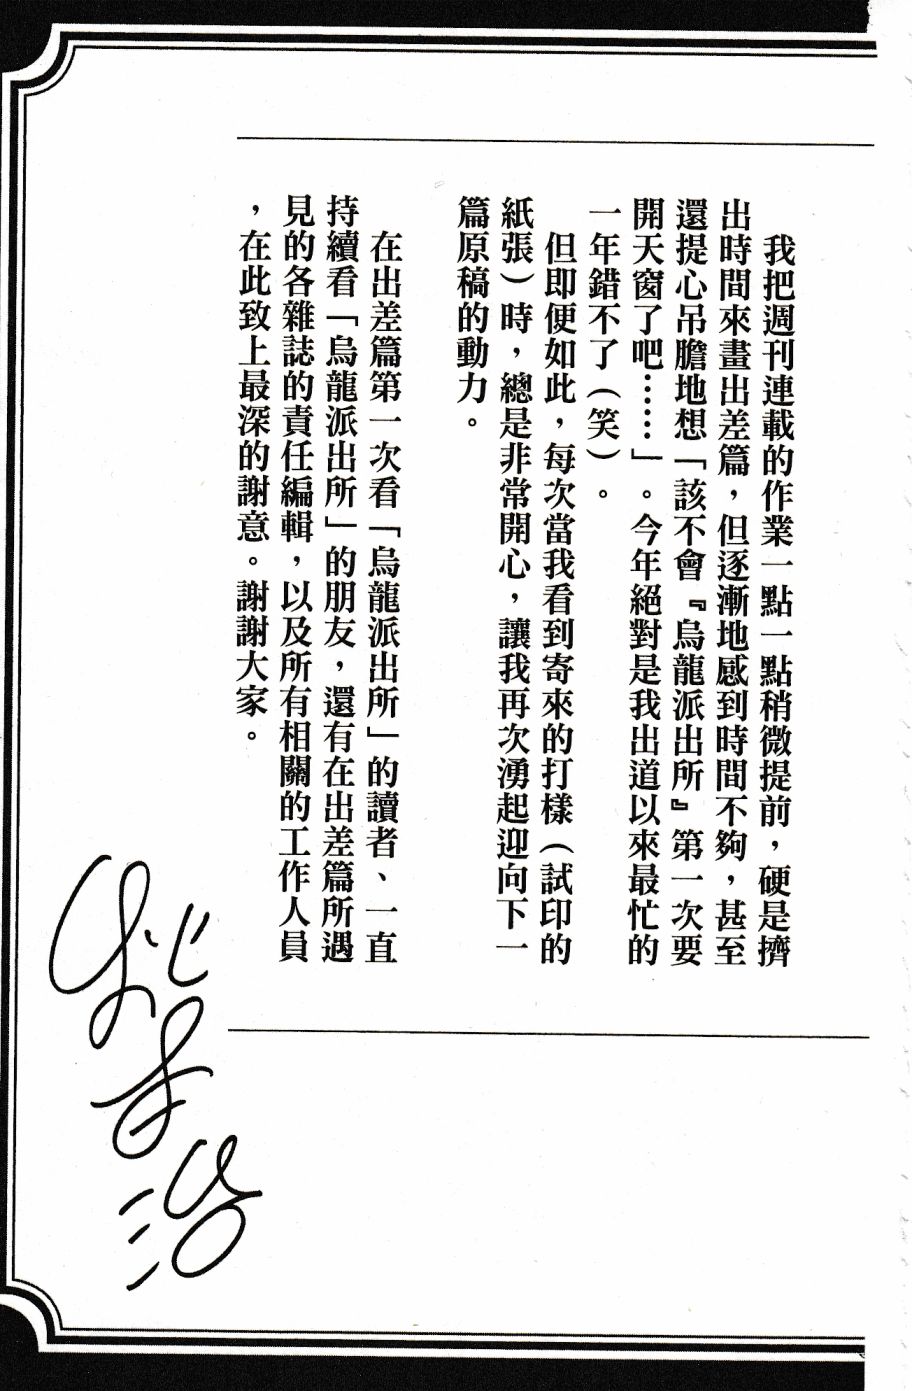 我把週刊連載的作業一點一點稍微提前，硬是擠
出時間來畫出差篇，但逐漸地感到時間不夠，甚至
還提心吊膽地想「該不會『烏龍派出所』第一次要
開天窗了吧……」。今年絕對是我出道以來最忙的
一年錯不了（笑）。
但即便如此，每次當我看到寄來的打樣（試印的
紙張）時，總是非常開心，讓我再次湧起迎向下一
篇原稿的動力。
在出差篇第一次看「烏龍派出所」的讀者、一直
持續看「烏龍派出所」的朋友，還有在出差篇所遇
見的各雜誌的責任編輯，以及所有相關的工作人員
，在此致上最深的謝意。謝謝大家。